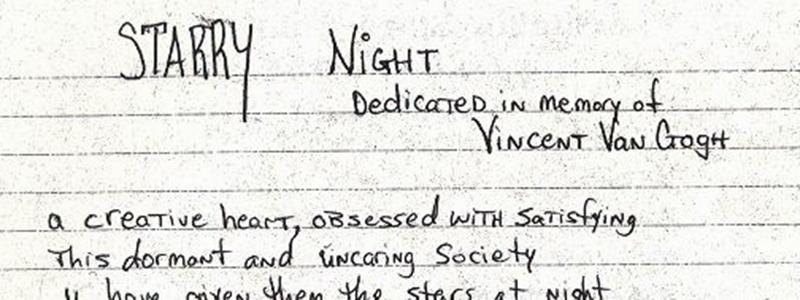 STARRY NIGHT
Dedicated in memory of
Vincent Van Gogh
a creative heart, obsessed with satisfying
This dormant and uncaring Society
u have given them the stars at night